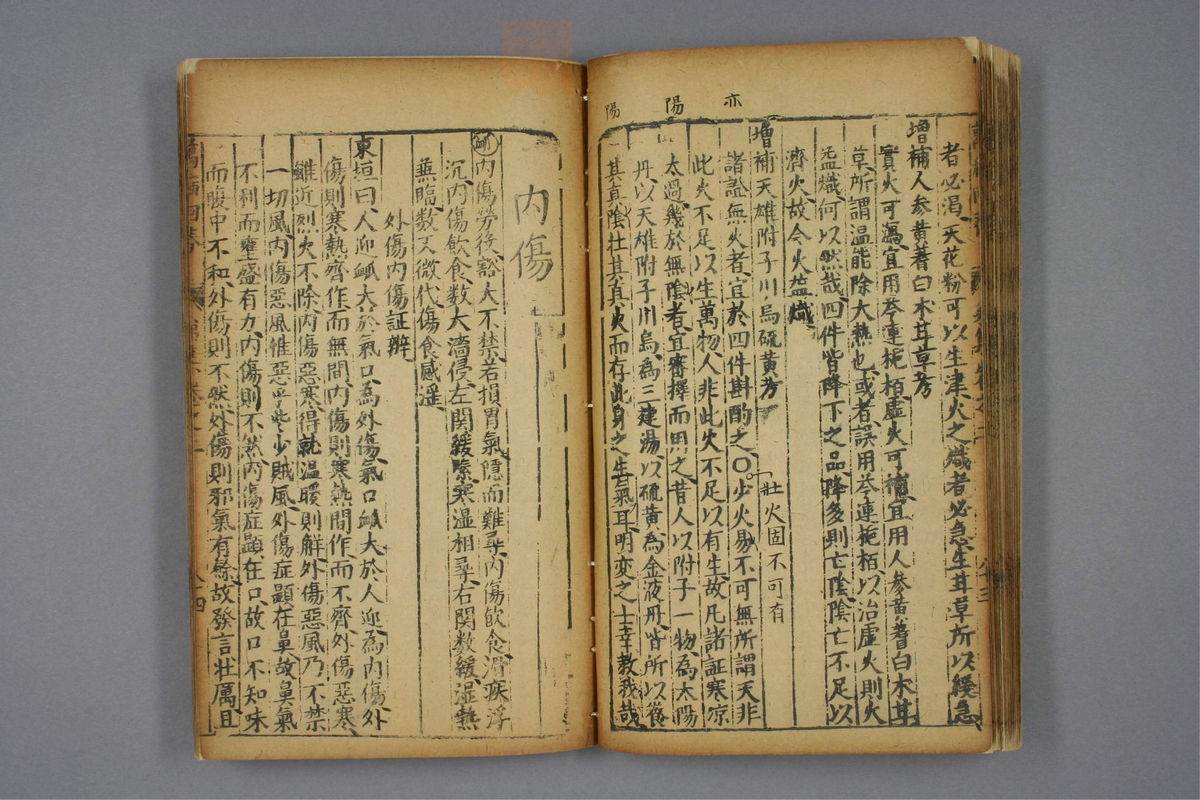 亦　陽　陽
者必渴天花粉可以生津火之熾者必急生甘草所以緩急
增補人參黄蓍白朮甘草考
實火可瀉宜用芩連梔栢虚火可補宜用人參黄蓍白朮甘
草所謂温能除大熱也或者誤用芩連梔栢以治虚火則火
益熾何以然哉四件皆降下之品降多則亡陰陰亡不足以
濟火故令火益熾
增補天雄附子川烏硫黄考
壯火固不可有
諸証無火者宜於四件斟酌之〇少火易不可無所謂天非
此火不足以生萬物人非此火不足以有生故凡諸証寒凉
太過幾於無陰者宜審擇而用之昔人以附子一物為太陽
丹以天雄附子川烏為三建湯以硫黄為金液丹皆所以復
其真陰壯其真火而存此身之生氣耳明変之士幸教我哉
内傷
䘑内傷勞役豁大不禁若損胃氣隱而難尋内傷飲食滑疾浮
沉内傷飲食数大濇侵左関緩緊寒湿相尋右関数緩湿熱
兼臨数又微代傷食感滛
外傷内傷証辨
東垣曰人迎䘑大於氣口為外傷氣口䘑大於人迎為内傷外
傷則寒熱齊作而無間内傷則寒熱間作而不齊外傷惡寒
雖近烈火不除内傷惡寒得就温暖則解外傷惡風乃不禁
一切風内傷惡風惟惡些少賊風外傷症顕在鼻故鼻氣
不利而壅盛有力内傷則不然内傷症顕在口故口不知味
而腹中不和外傷則不然外傷則邪氣有餘故發言壯厲且
八十四